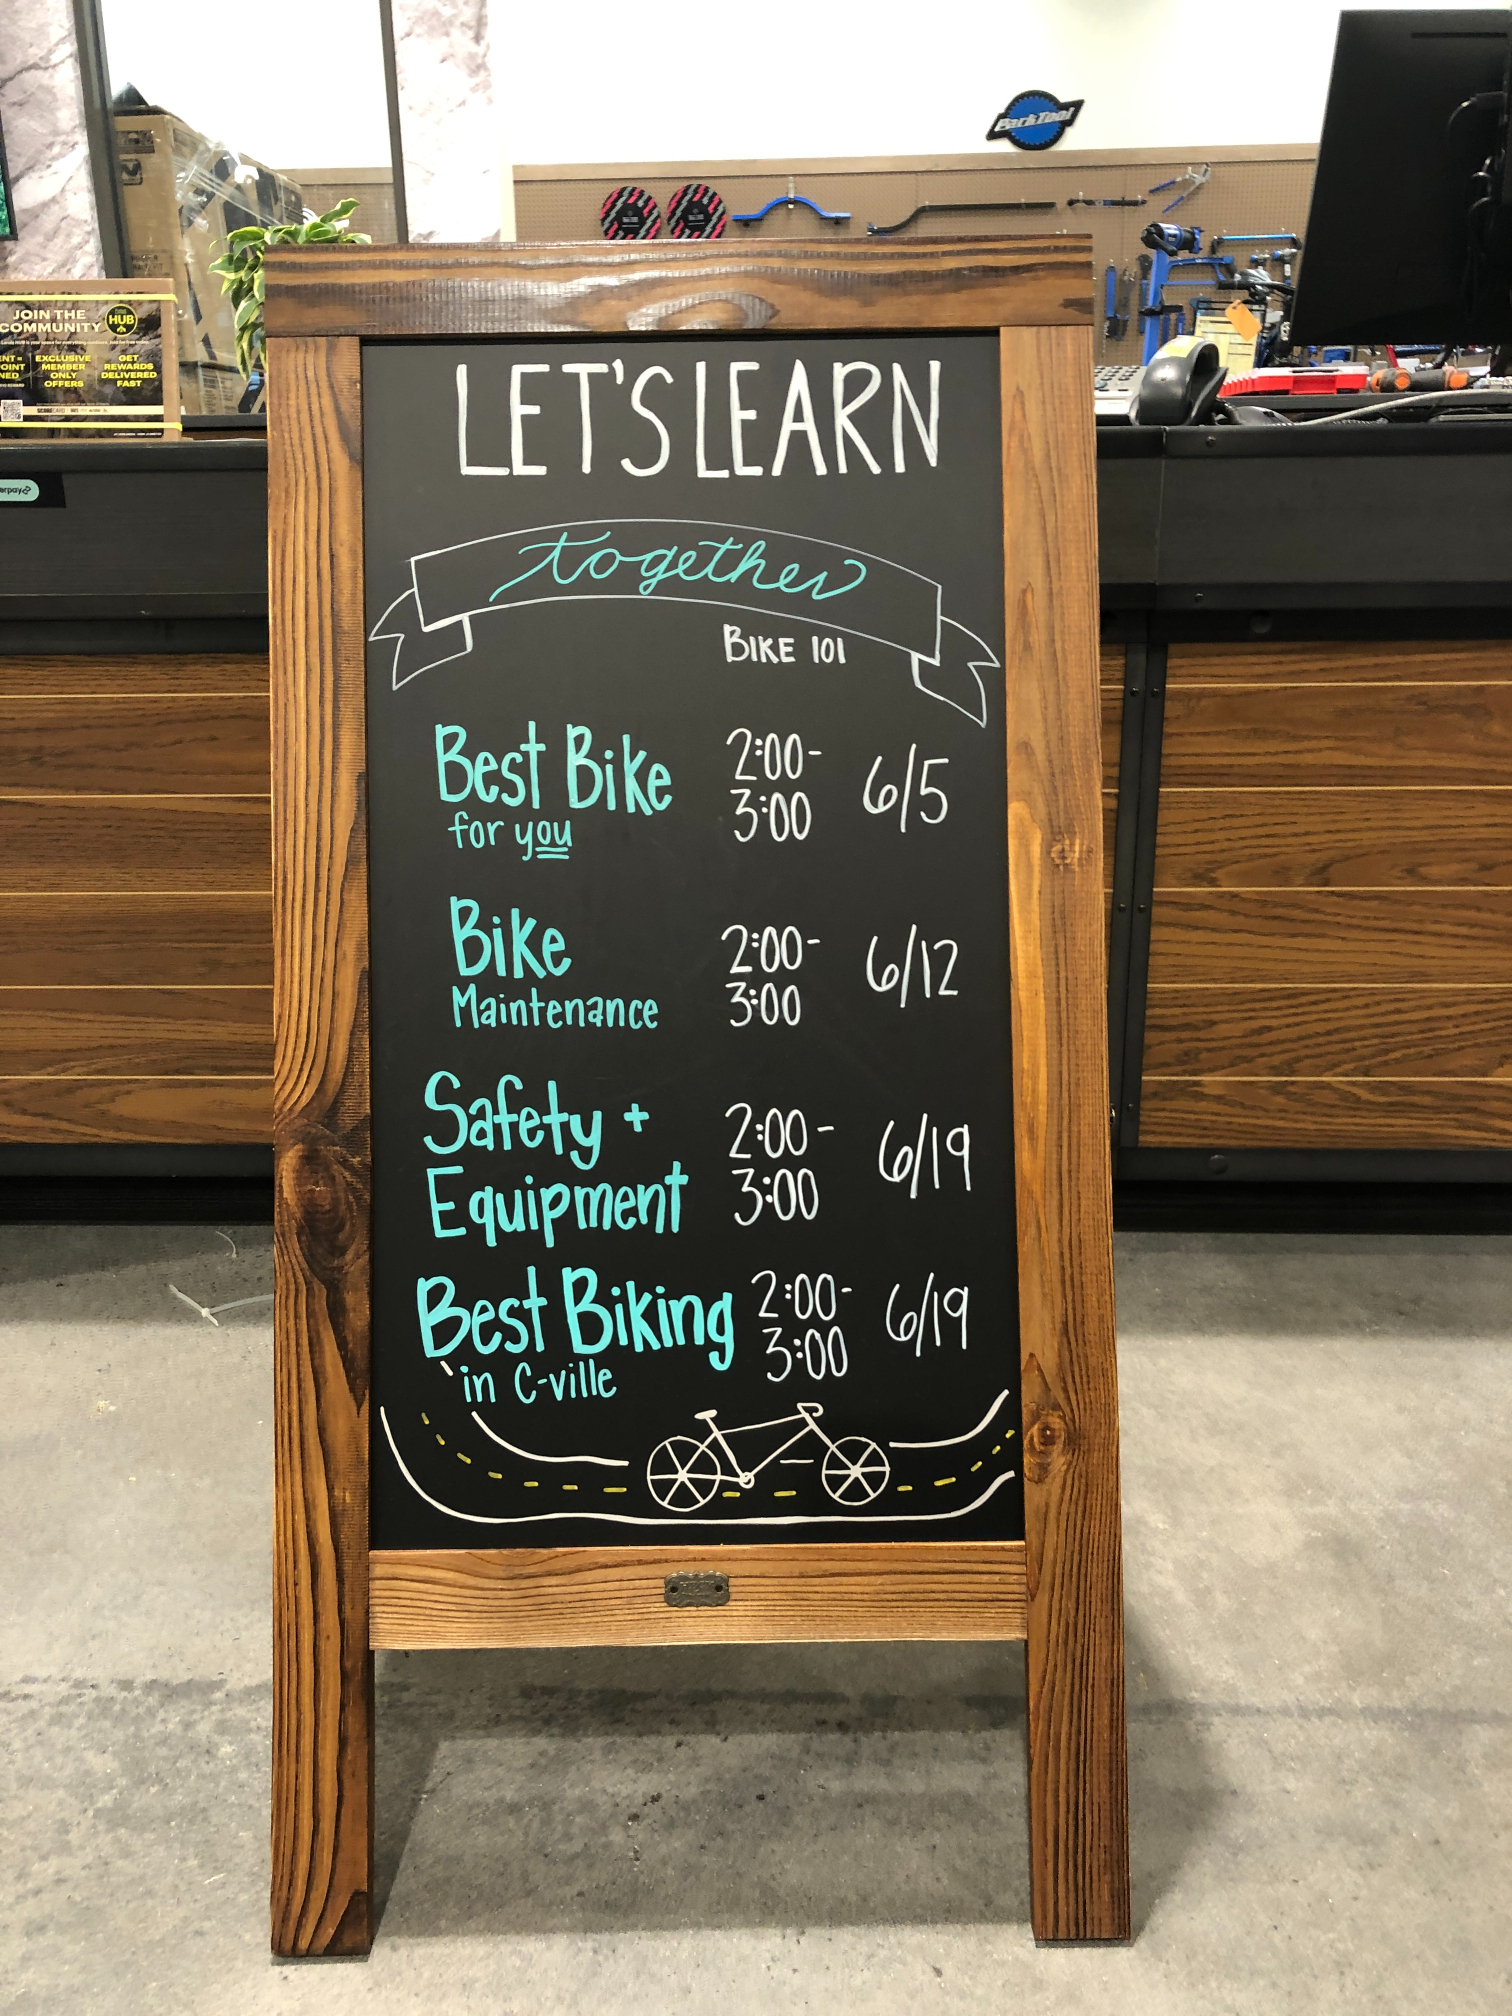 ParkTool
JOIN THE
COMMUNITY
HUB
EXCLUSIVE
MEMBER
ONLY
OFFERS
GET
REWARDS
DELIVERED
FAST
SCORECARD
LET'S LEARN
together
BIKE 101
Best Bike
for you
2:00-
3:00
6/5
Bike
Maintenance
2:00-
3:00
6/12
Safety +
Equipment
2:00-
3:00
6/19
Best Biking
in C-ville
2:00-
3:00
6/19